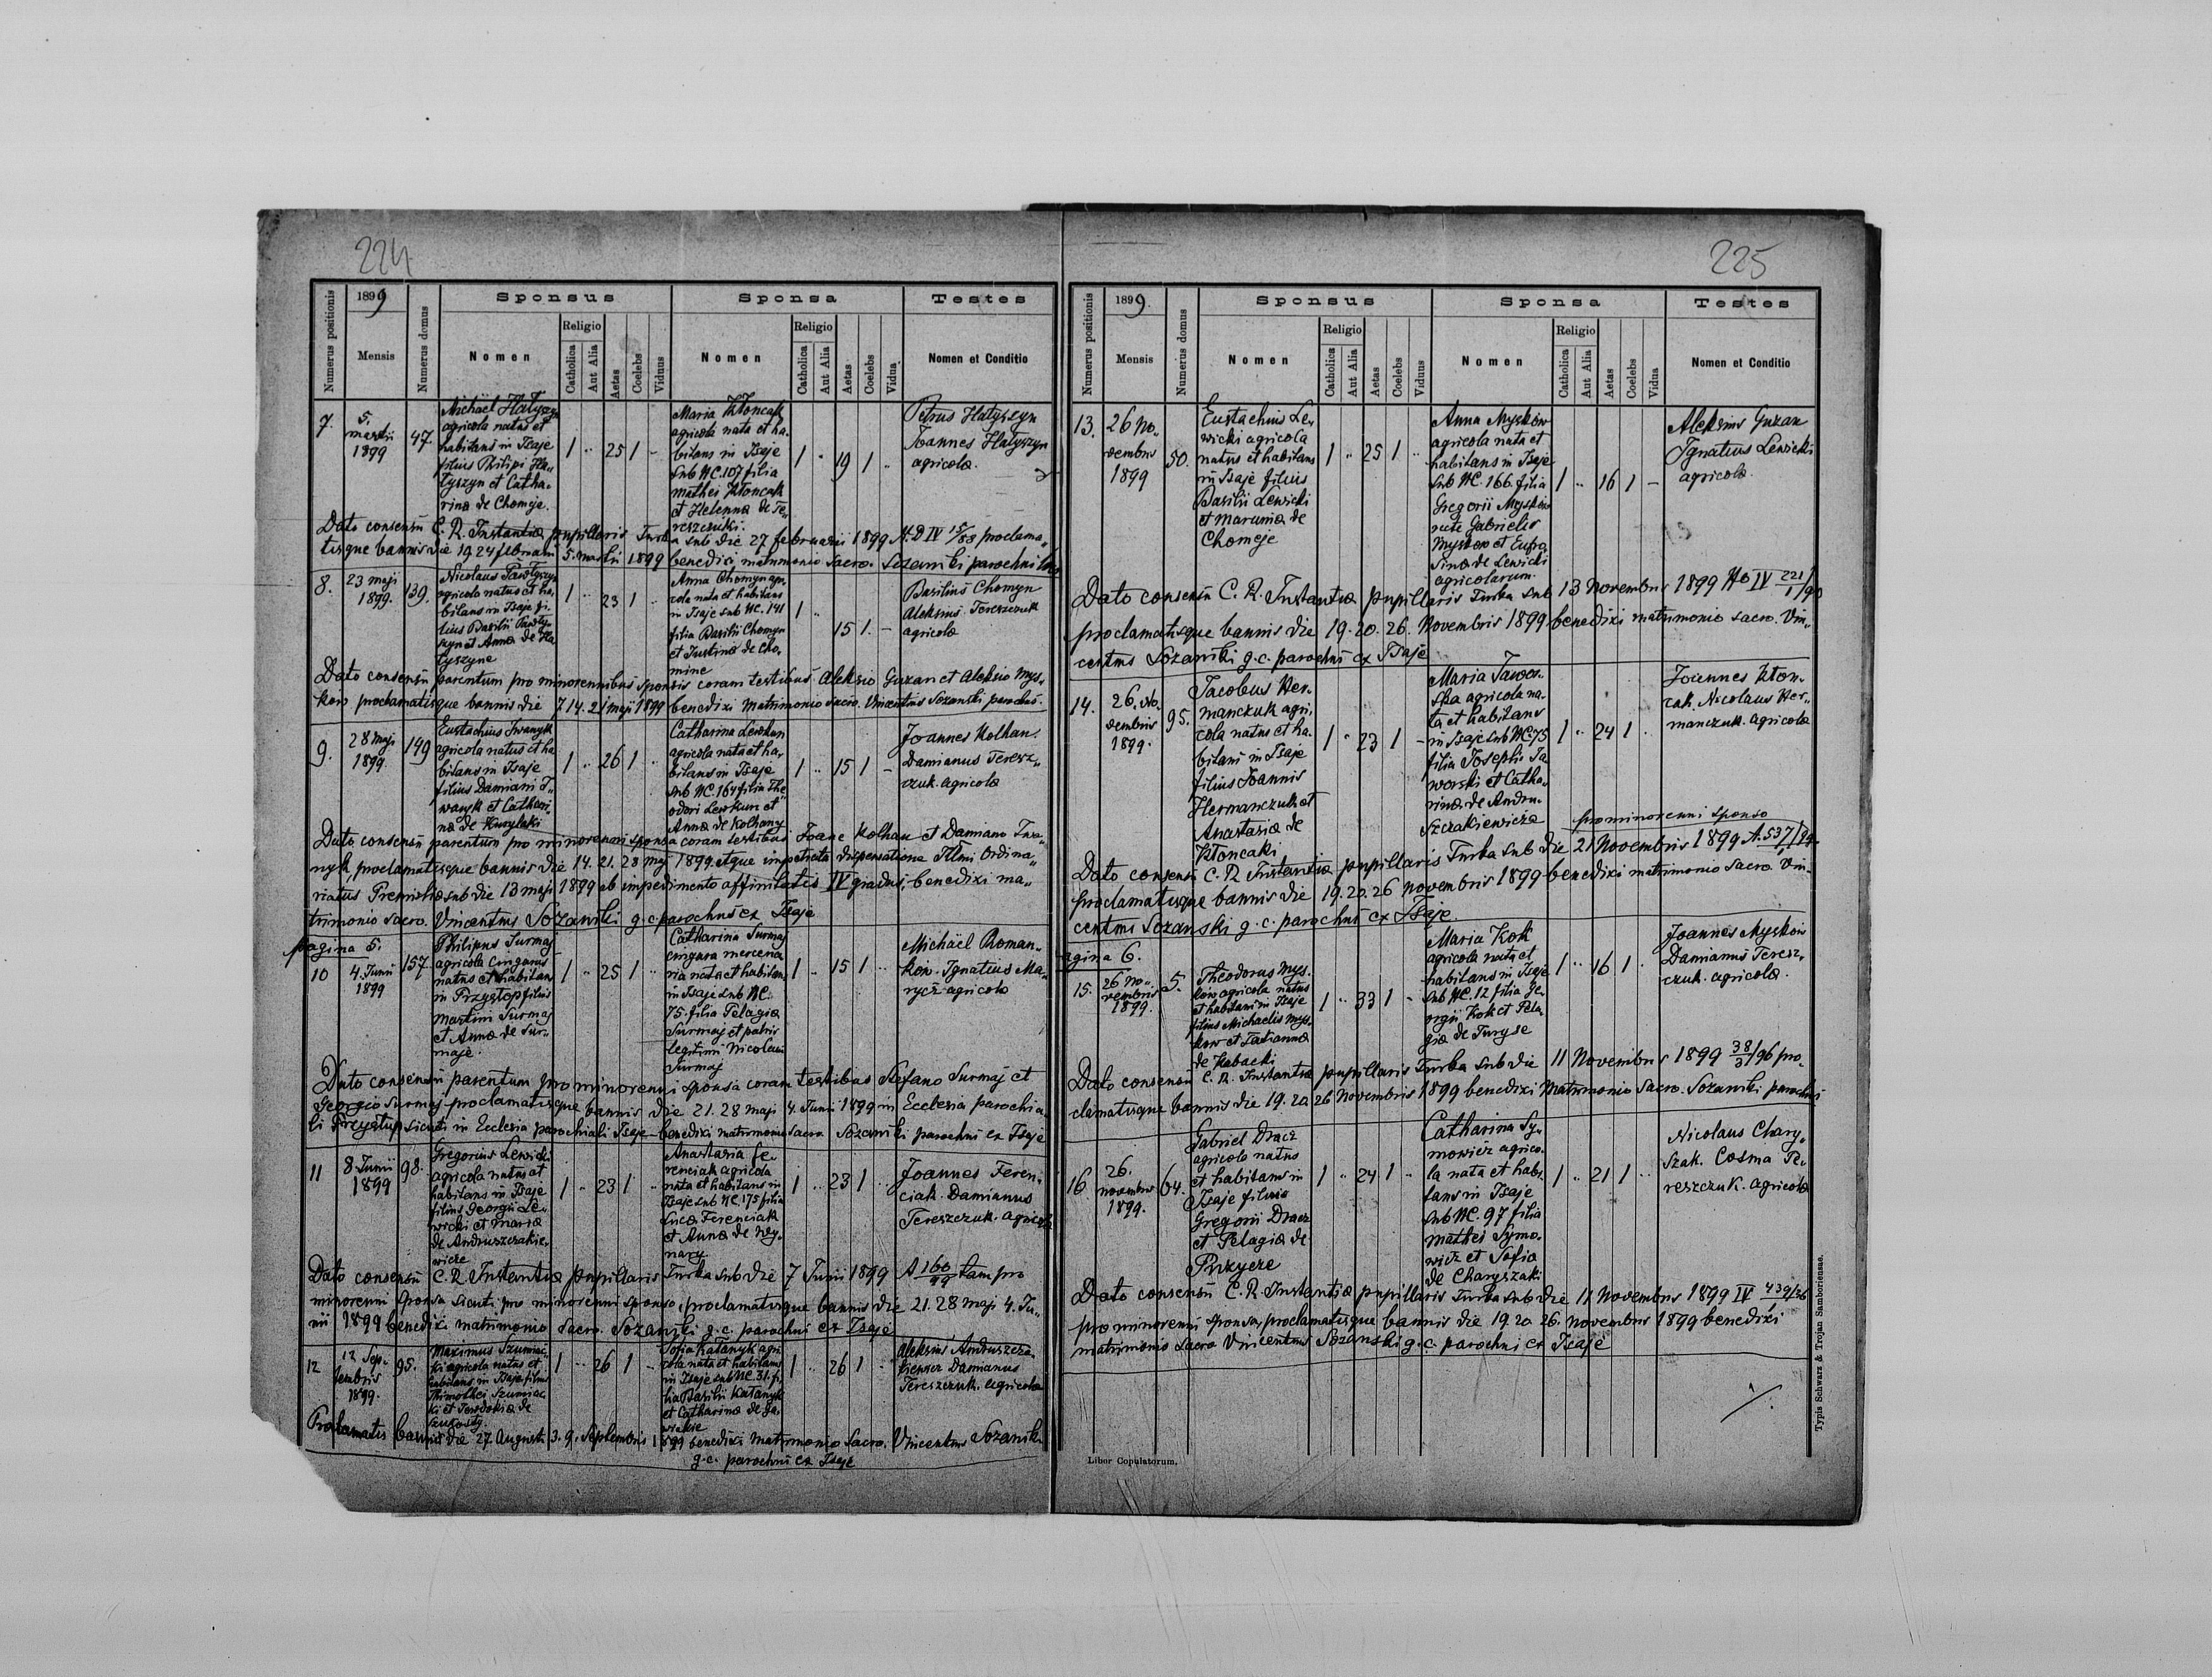 224
1899
Numerus positionis
Mensis
Numerus domus
Sponsus
Nomen
Religio
Catholica
Aut Alia
Aetas
Coelebs
Viduus
Sponsa
Nomen
Religio
Catholica
Aut Alia
Aetas
Coelebs
Vidua
Testes
Nomen et Conditio
7.
5.
martii
1899
47.
Michael Hatyszyn
agricola natus et
habitans in Isaje
filius Philipi Ha„
tyszyn et Catha„
rina de Chomeje.
1 „ 25 1 „
Maria Kłoncak
agricola nata et ha„
bitans in Isaje
sub NC. 107 filia
Mathei Kłoncak
et Helenna de Te„
reszczuki.
1 „ 19 1 „
Petrus Hatyszyn
Joannes Hatyszyn
agricola.
Dato consensu C. R. Instantia pupillaris Turka sub die 27 februarii 1899 N. D IV 15/88 proclama„
tisque bannis die 19 24 februarii 5. martii 1899 benedixi matrimonio sacro. Sozanski parochus
8.
23 maji
1899.
139.
Nicolaus
agricola natus et ha„
bitans in Isaje fi„
lius Basilii
et Anna de Ha
tyszyne
1 „ 23 1 „
Anna Chomyn agri„
cola nata et habitans
in Isaje sub NC. 141
filia Basilii Chomyn
et Justina de Cho„
mine
1 „ 15 1. –
Basilius Chomyn
Aleksius Tereszczuk
agricola
Dato consensu parentum pro minorennibus sponsis coram testibus Aleksio Guzan et Aleksio Mys„
kow proclamatisque bannis die 7 14. 21 maji 1899 benedixi matrimonio sacro. Vincentus Sozanski parochus.
9.
28 maji
1899
149
Eustachius Iwanyk
agricola natus et ha
bitans in Isaje
filius Damiani I„
wanyk et Cathari„
na de Kurylaki
1 „ 26 1 „
Catharina Lewkun
agricola nata et ha„
bitans in Isaje
sub NC. 164 filia The„
odori Lewkun et
Anna de Kolhany
1 „ 15 1 –
Joannes Kolhan.
Damianus Teresz„
czuk. agricola
Dato consensu parentum pro minorenni sponsa coram testibus Joane Kolhan et Damiano Iwa„
nyk, proclamatisque bannis die 14. 21. 28 maj 1899. atque impetrata dispensatione Illmi Ordina„
riatus Premislia sub die 13 maji 1899 ab impedimento affinitatis IV gradus, benedixi ma„
trimonio sacro. Vincentus Sozanski g. c. parochus ex Isaje
pagina 5.
10
4. Junii
1899
157
Philipus Surmaj
agricola Cinganus
natus et habitans
in Przysłop filius
Martini Surmaj
et Anna de Sur„
maje.
1 „ 25 1 „
Catharina Surmaj
cingara mercena
ria nata et habitans
in Isaje sub NC.
75. filia Pelagia
Surmaj et patris
legitimi Nicolaus
Surmaj
1 „ 15 1 „
Michäel Roman„
kow. Ignatius Ma„
rycz agricola
Dato consensu parentum pro minorenni sponsa coram testibus Stefano Surmaj et
Georgio Surmaj proclamatisque bannis die 21. 28 maji 4. Junii 1899 in Ecclesia parochia
li Przysłup sicuti in Ecclesia parochiali Isaje – benedixi matrimonio sacro Sozanski parochus ex Isaje
11
8 Junii
1899
98.
Gregorius Lewicki
agricola natus et
habitans in Isaje
filius Georgii Le„
wicki et Maria
de Andruszczakie„
wicze
1 „ 23 1 „
Anastasia Fe„
renciak agricola
nata et habitans in
Isaje sub NC. 175 filia
Luca Ferenciak
et Anna de Wy„
nary.
1 „ 23 1 „
Joannes Feren„
ciak. Damianus
Tereszczuk. agricola
Dato consensu C. R. Instantia pupillaris Turka sub die 7 Junii 1899 A 160/99 tam pro
minorenni sponsa sicuti pro minorenni sponso, proclamatisque bannis die 21. 28 maji 4. Ju„
nii 1899 benedixi matrimonio sacro. Sozanski g. c. parochus ex Isaje
12
12 Sep„
tembris
1899.
95.
Maximus Szumiac„
ki agricola natus et
habitans in Isaje filius
Thimothei Szumiac„
ki et Tewdokia de
1 „ 26 1 „
Sofia Katanyk agri„
cola nata et habitans
in Isaje sub NC. 31. fi„
lia Basilii Katanyk
et Catharina de
1 „ 26 1 „
Aleksius Andruszcza„
kiewicz Damianus
Tereszczuk. agricola
Proclamatis bannis die 27 Augusti 3. 9. Septembris 1899 benedixi matrimonio sacro. Vincentus Sozanski
g. c. parochus ex Isaje
225
1899.
Numerus positionis
Mensis
Numerus domus
Sponsus
Nomen
Religio
Catholica
Aut Alia
Aetas
Coelebs
Viduus
Sponsa
Nomen
Religio
Catholica
Aut Alia
Aetas
Coelebs
Vidua
Testes
Nomen et Conditio
13.
26 No„
vembris
1899
50.
Eustachius Le„
wicki agricola
natus et habitans
in Isaje filius
Basilii Lewicki
et Marunia de
Chomeje
1 „ 25 1 „
Anna Myskow
agricola nata et
habitans in Isaje
sub NC. 166. filia
Gregorii Myskow
recte Gabrielis
Myskow et Eufro„
sina de Lewicki
agricolarum.
1 „ 16 1 –
Aleksius Guzan
Ignatius Lewicki
agricola.
Dato consensu C. R. Instantia pupillaris Turka sub 13 Novembris 1899 No IV 221/1/90
proclamatisque bannis die 19. 20. 26. Novembris 1899. benedixi matrimonio sacro. Vin„
centus Sozanski g. c. parochus ex Isaje
14.
26. No„
vembris
1899.
95.
Jacobus Her„
manczuk agri„
cola natus et ha„
bitans in Isaje
filius Joannis
Hermanczuk et
Anastasia de
Kłoncaki
1 „ 23 1 –
Maria Jawor„
ska agricola na„
ta et habitans
in Isaje sub NC. 75
filia Josephi Ja„
worski et Catha„
rina de Andru„
szczakiewicze
1 „ 24 1 „
Joannes Kłon„
cak, Nicolaus Her„
manczuk. agricola
pro minorenni sponso
Dato consensu C. R. Instantia pupillaris Turka sub die 21 Novembris 1899 A. 537/94
proclamatisque bannis die 19. 20. 26 novembris 1899 benedixi matrimonio sacro. Vin„
centus Sozanski g. c. parochus ex Isaje.
agina 6.
15.
26 No„
vembris
1899.
5.
Theodorus Mys„
kow agricola natus
et habitans in Isaje
filius Michaelis Mys„
kow et Tatianna
de Kabacki
1 „ 33 1 „
Maria Kok
agricola nata et
habitans in Isaje
sub NC. 12 filia Ge„
orgii Kok et Pela„
gia de Turyse
1 „ 16 1 „
Joannes Myskow
Damianus Teresz„
czuk. agricola.
Dato consensu C. R. Instantia pupillaris Turka sub die 11 Novembris 1899 38/3/96 pro„
clamatisque bannis die 19. 20 26 Novembris 1899 benedixi Matrimonio sacro. Sozanski parochus
16.
26.
novembris
1899.
64.
Gabriel Dracz
agricola natus
et habitans in
Isaje filius
Gregorii Dracz
et Pelagia de
1 „ 24 1 „
Catharina Sy„
mowicz agrico„
la nata et habi„
tans in Isaje
sub NC. 97 filia
Mathei Symo„
wicz et Sofia
de Charyszaki
1 „ 21 1 „
Nicolaus Chary„
szak. Cosma Te„
reszczuk. agricola
Dato consensu C. R. Instantia pupillaris Turka sub die 11 Novembris 1899 IV 439/1/96
pro minorenni sponsa, proclamatisque bannis die 19. 20 26. Novembris 1899 benedixi
matrimonio sacro Vincentus Sozanski g. c. parochus ex Isaje
Liber Copulatorum.
Typis Schwarz & Trojan Samboriensae.